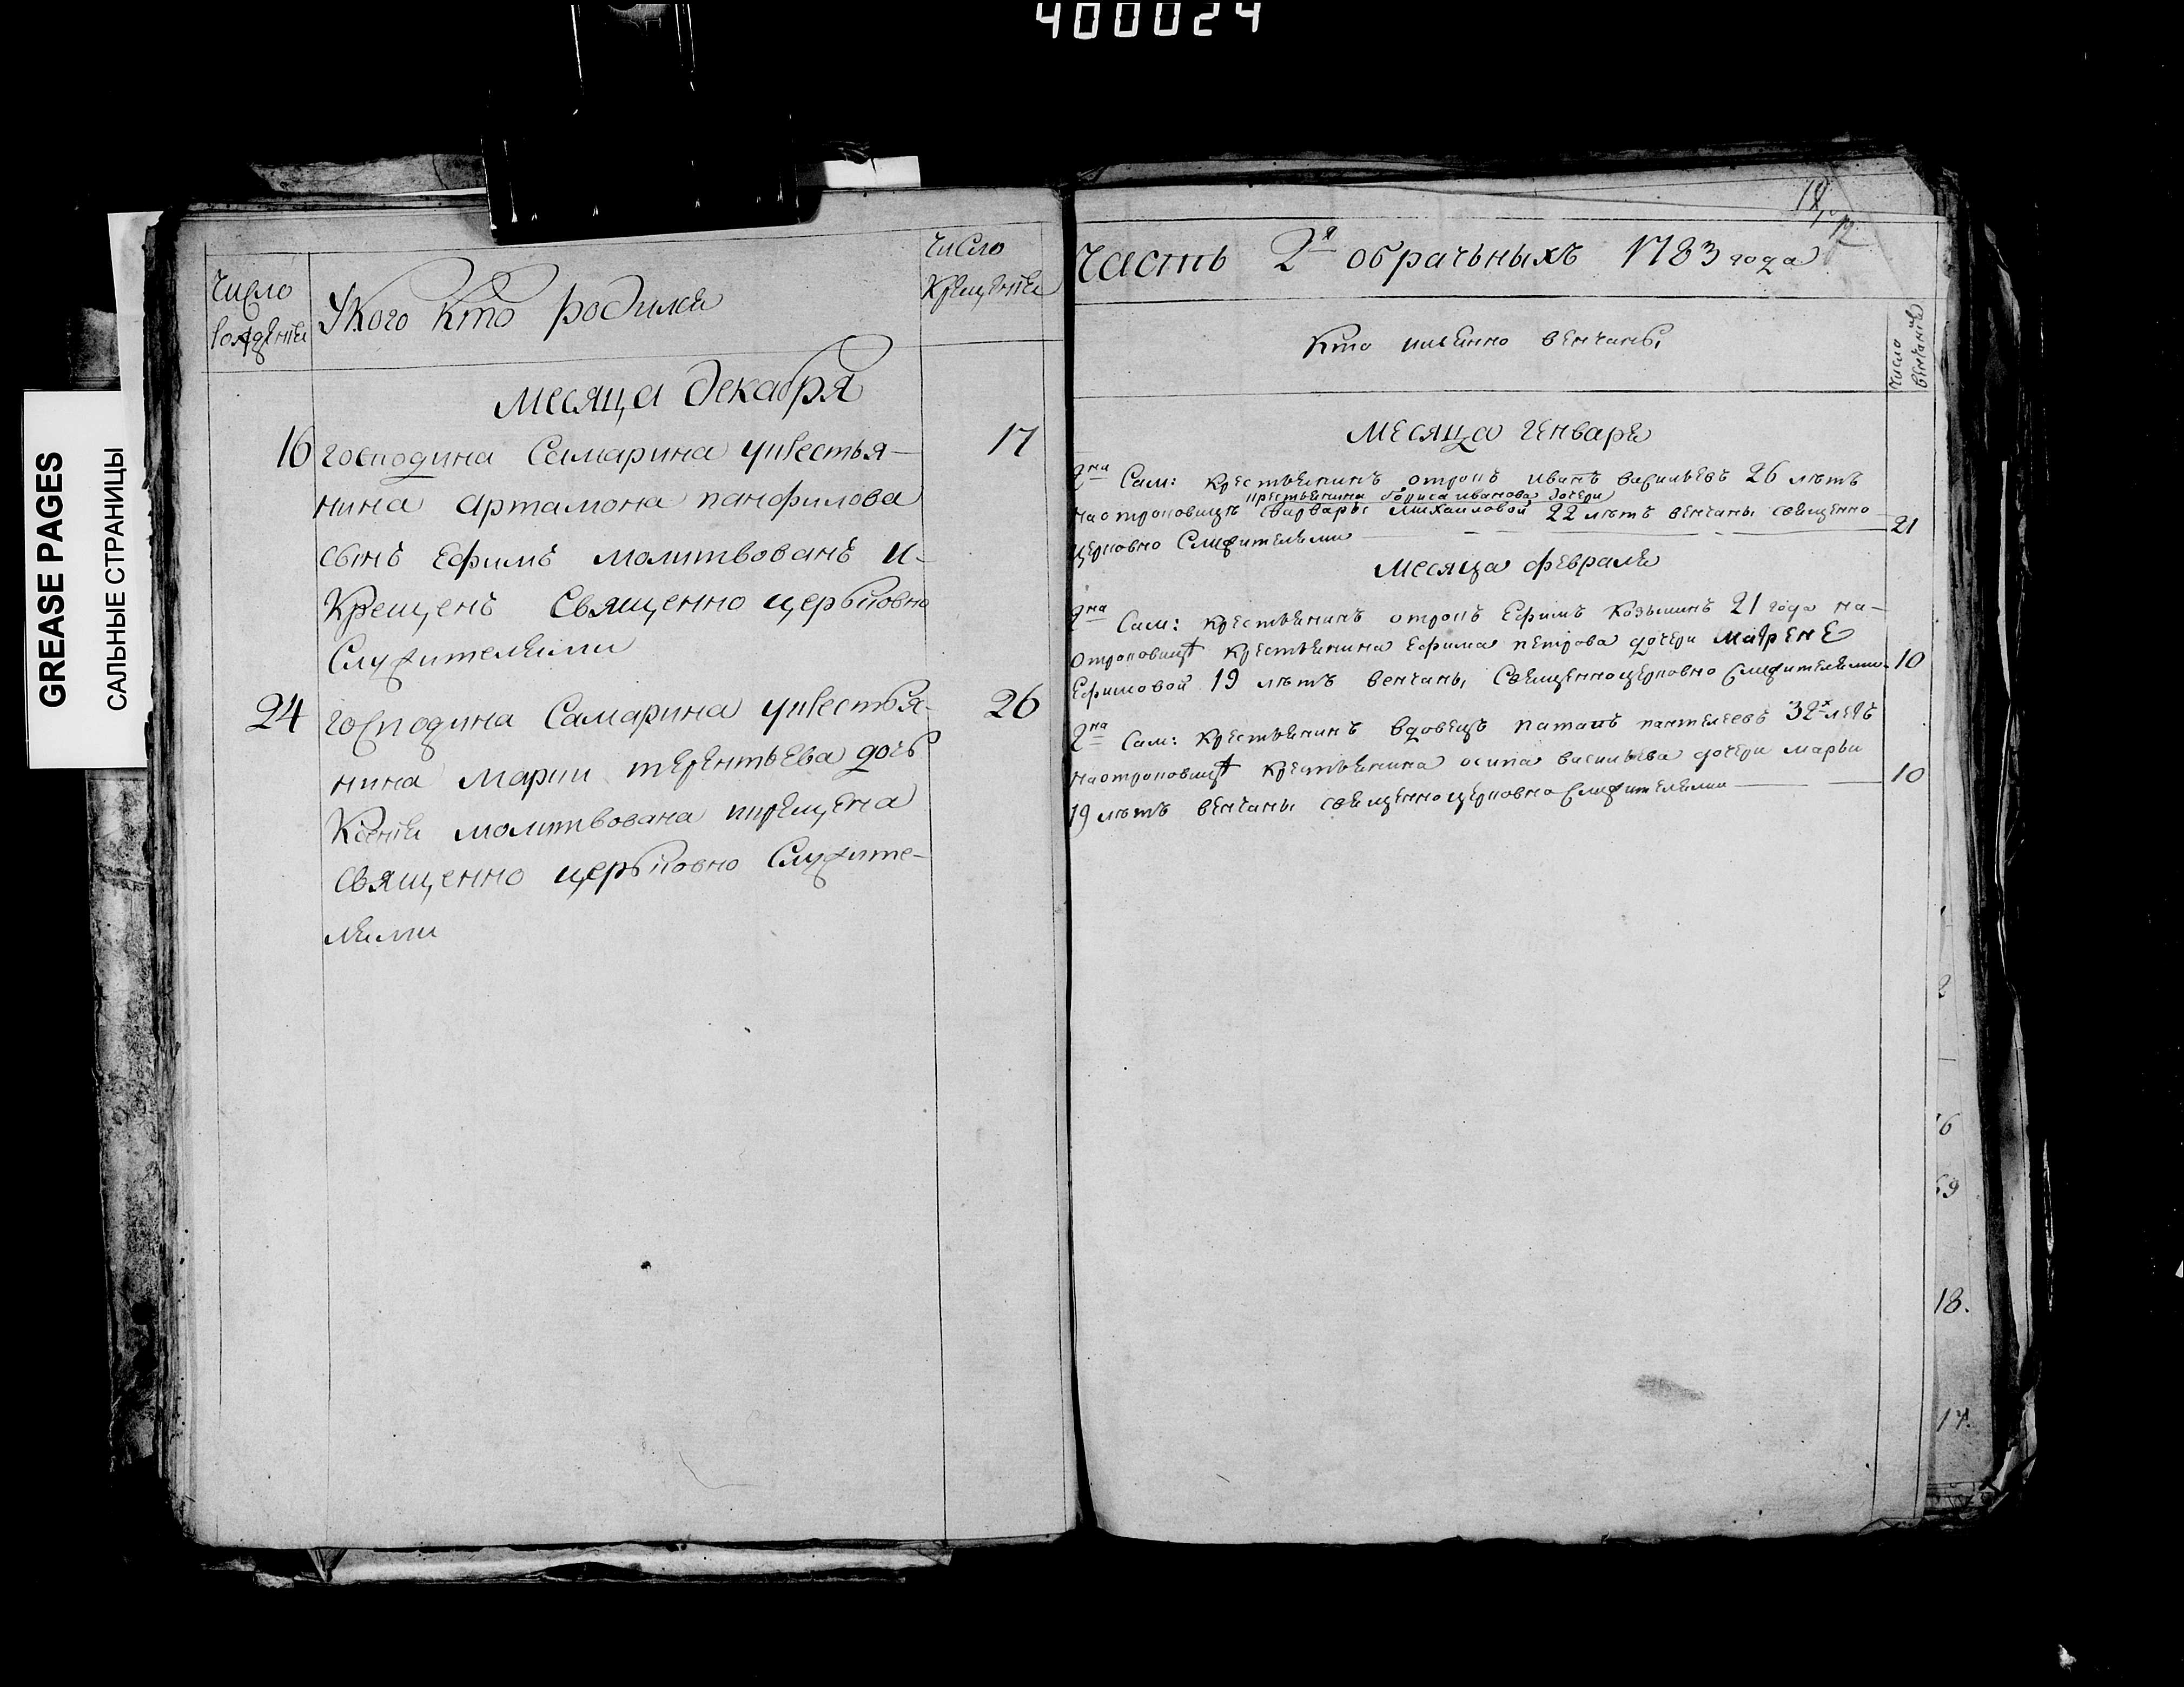 400024
GREASE PAGES
САЛЬНЫЕ СТРАНИЦЫ
Число рождения
У кого кто родился
Число крещения
месяца декабря
16 господина Самарина у крестья-
нина артамона панфилова
сынъ Ефимъ молитвованъ и-
крещенъ Священно церьковно
Служителями
17
24 господина Самарина у крестья-
нина марии терентьева дочь
Ксения молитвована и крещена
священно церьковно Служите-
лями
26
часть 2я о брачьныхъ 1783 года
кто имянно венчаны
число венчания
месяца генваря
гна Сам: крестьянинъ отрокъ иванъ васильевъ 26 летъ
крестьянина бориса иванова дочери
на отроковице варваре михайловой 22 летъ венчаны священно
церковно Служителями
21
месяца февраля
гна Сам: крестьянинъ отрокъ Ефимъ Козьминъ 21 года на-
отроковице крестьянина Ефима петрова дочери матрене
Ефимовой 19 летъ венчаны, Священноцерковно Служителями
10
гна Сам: крестьянинъ вдовецъ патапъ пантелеевъ 32х летъ
на отроковице крестьянина осипа васильева дочери марьи
19 летъ венчаны священноцерковно Служителями
10
18.
17.